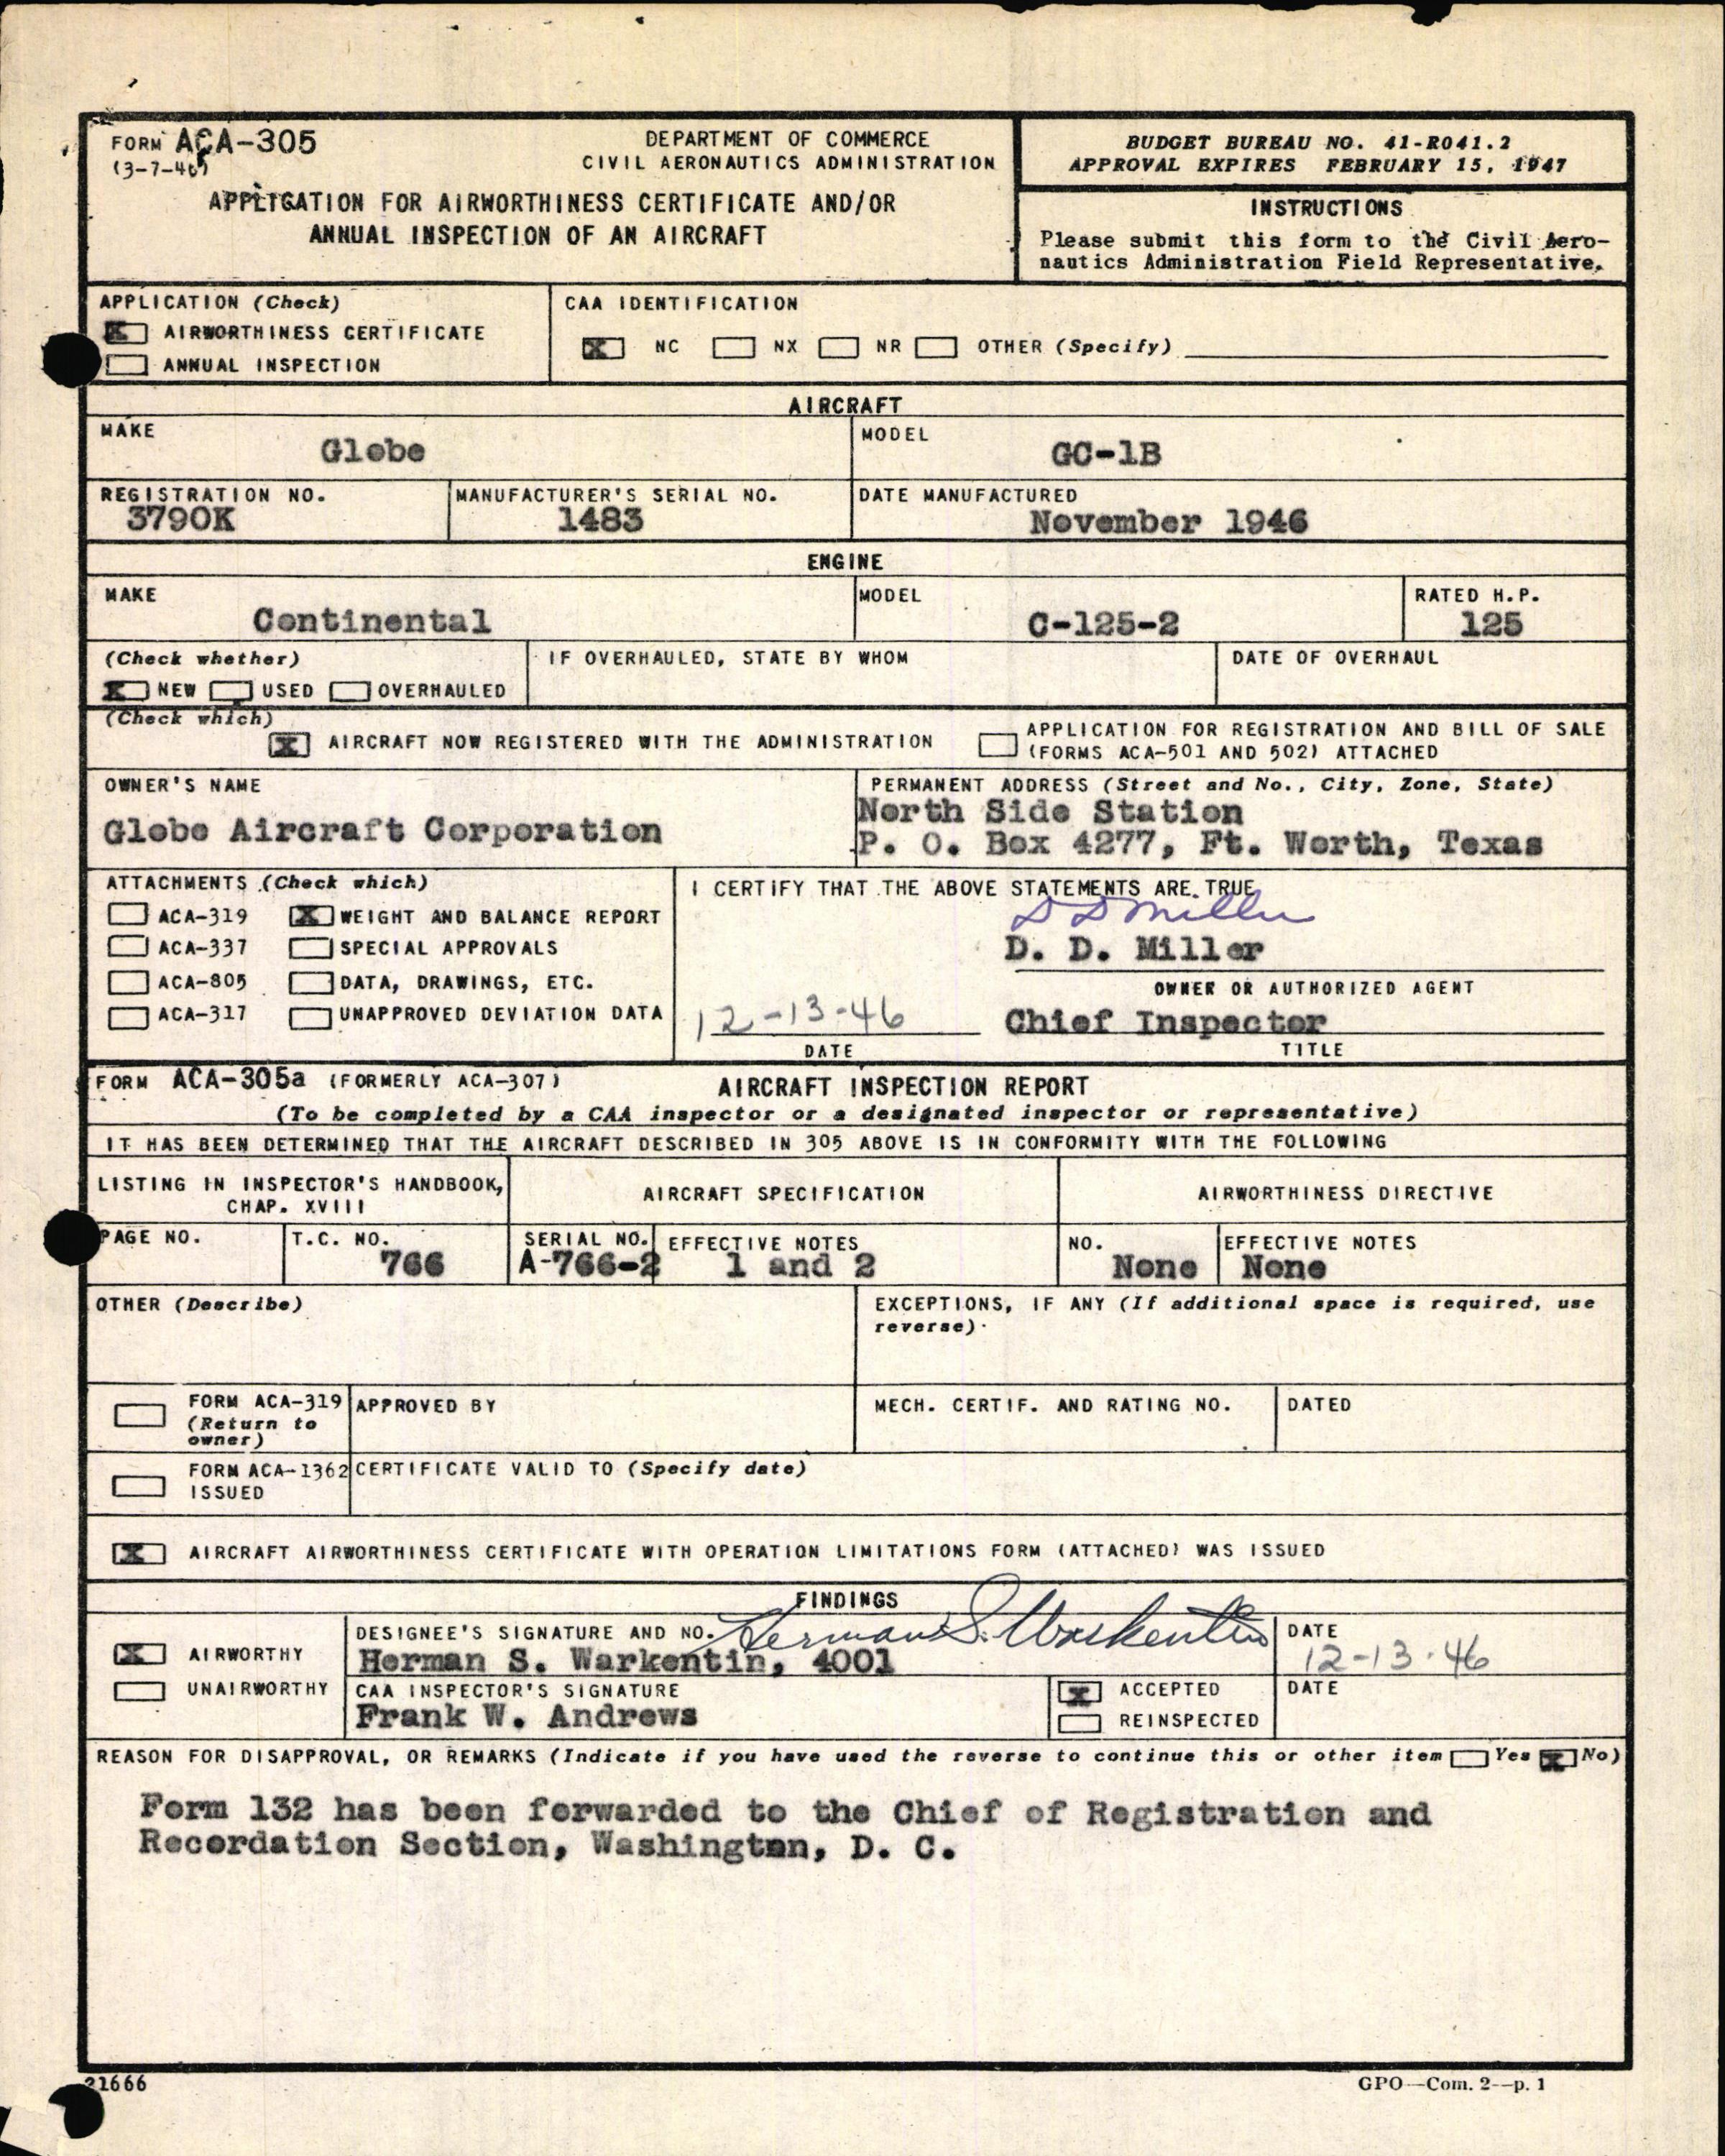 FORM ACA-305
(3-7-46)
DEPARTMENT OF COMMERCE
CIVIL AERONAUTICS ADMINISTRATION
APPLICATION FOR AIRWORTHINESS CERTIFICATE AND/OR
ANNUAL INSPECTION OF AN AIRCRAFT
BUDGET BUREAU NO. 41-R041.2
APPROVAL EXPIRES FEBRUARY 15, 1947
INSTRUCTIONS
Please submit this form to the Civil Aero-
nautics Administration Field Representative.
APPLICATION (Check)
X AIRWORTHINESS CERTIFICATE
ANNUAL INSPECTION
CAA IDENTIFICATION
X NC NX NR OTHER (Specify)
AIRCRAFT
MAKE
Globe
MODEL
GC-1B
REGISTRATION NO.
3790K
MANUFACTURER'S SERIAL NO.
1483
DATE MANUFACTURED
November 1946
ENGINE
MAKE
Continental
MODEL
C-125-2
RATED H.P.
125
(Check whether)
X NEW USED OVERHAULED
IF OVERHAULED, STATE BY WHOM
DATE OF OVERHAUL
(Check which)
X AIRCRAFT NOW REGISTERED WITH THE ADMINISTRATION
APPLICATION FOR REGISTRATION AND BILL OF SALE
(FORMS ACA-501 AND 502) ATTACHED
OWNER'S NAME
Globe Aircraft Corporation
PERMANENT ADDRESS (Street and No., City, Zone, State)
North Side Station
P. O. Box 4277, Ft. Worth, Texas
ATTACHMENTS (Check which)
ACA-319 X WEIGHT AND BALANCE REPORT
ACA-337 SPECIAL APPROVALS
ACA-805 DATA, DRAWINGS, ETC.
ACA-317 UNAPPROVED DEVIATION DATA
I CERTIFY THAT THE ABOVE STATEMENTS ARE TRUE
D D Miller
D. D. Miller
OWNER OR AUTHORIZED AGENT
12-13-46 Chief Inspector
DATE TITLE
FORM ACA-305a (FORMERLY ACA-307) AIRCRAFT INSPECTION REPORT
(To be completed by a CAA inspector or a designated inspector or representative)
IT HAS BEEN DETERMINED THAT THE AIRCRAFT DESCRIBED IN 305 ABOVE IS IN CONFORMITY WITH THE FOLLOWING
LISTING IN INSPECTOR'S HANDBOOK,
CHAP. XVIII
AIRCRAFT SPECIFICATION
AIRWORTHINESS DIRECTIVE
PAGE NO.
T.C. NO.
766
SERIAL NO.
A-766-2
EFFECTIVE NOTES
1 and 2
NO.
None
EFFECTIVE NOTES
None
OTHER (Describe)
EXCEPTIONS, IF ANY (If additional space is required, use
reverse).
FORM ACA-319
(Return to
owner)
APPROVED BY
MECH. CERTIF. AND RATING NO.
DATED
FORM ACA-1362
ISSUED
CERTIFICATE VALID TO (Specify date)
X AIRCRAFT AIRWORTHINESS CERTIFICATE WITH OPERATION LIMITATIONS FORM (ATTACHED) WAS ISSUED
FINDINGS
X AIRWORTHY
UNAIRWORTHY
DESIGNEE'S SIGNATURE AND NO. Herman S. Warkentin
Herman S. Warkentin, 4001
DATE
12-13-46
CAA INSPECTOR'S SIGNATURE
Frank W. Andrews
X ACCEPTED
REINSPECTED
DATE
REASON FOR DISAPPROVAL, OR REMARKS (Indicate if you have used the reverse to continue this or other item Yes X No)
Form 132 has been forwarded to the Chief of Registration and
Recordation Section, Washington, D. C.
21666
GPO—Com. 2—p. 1